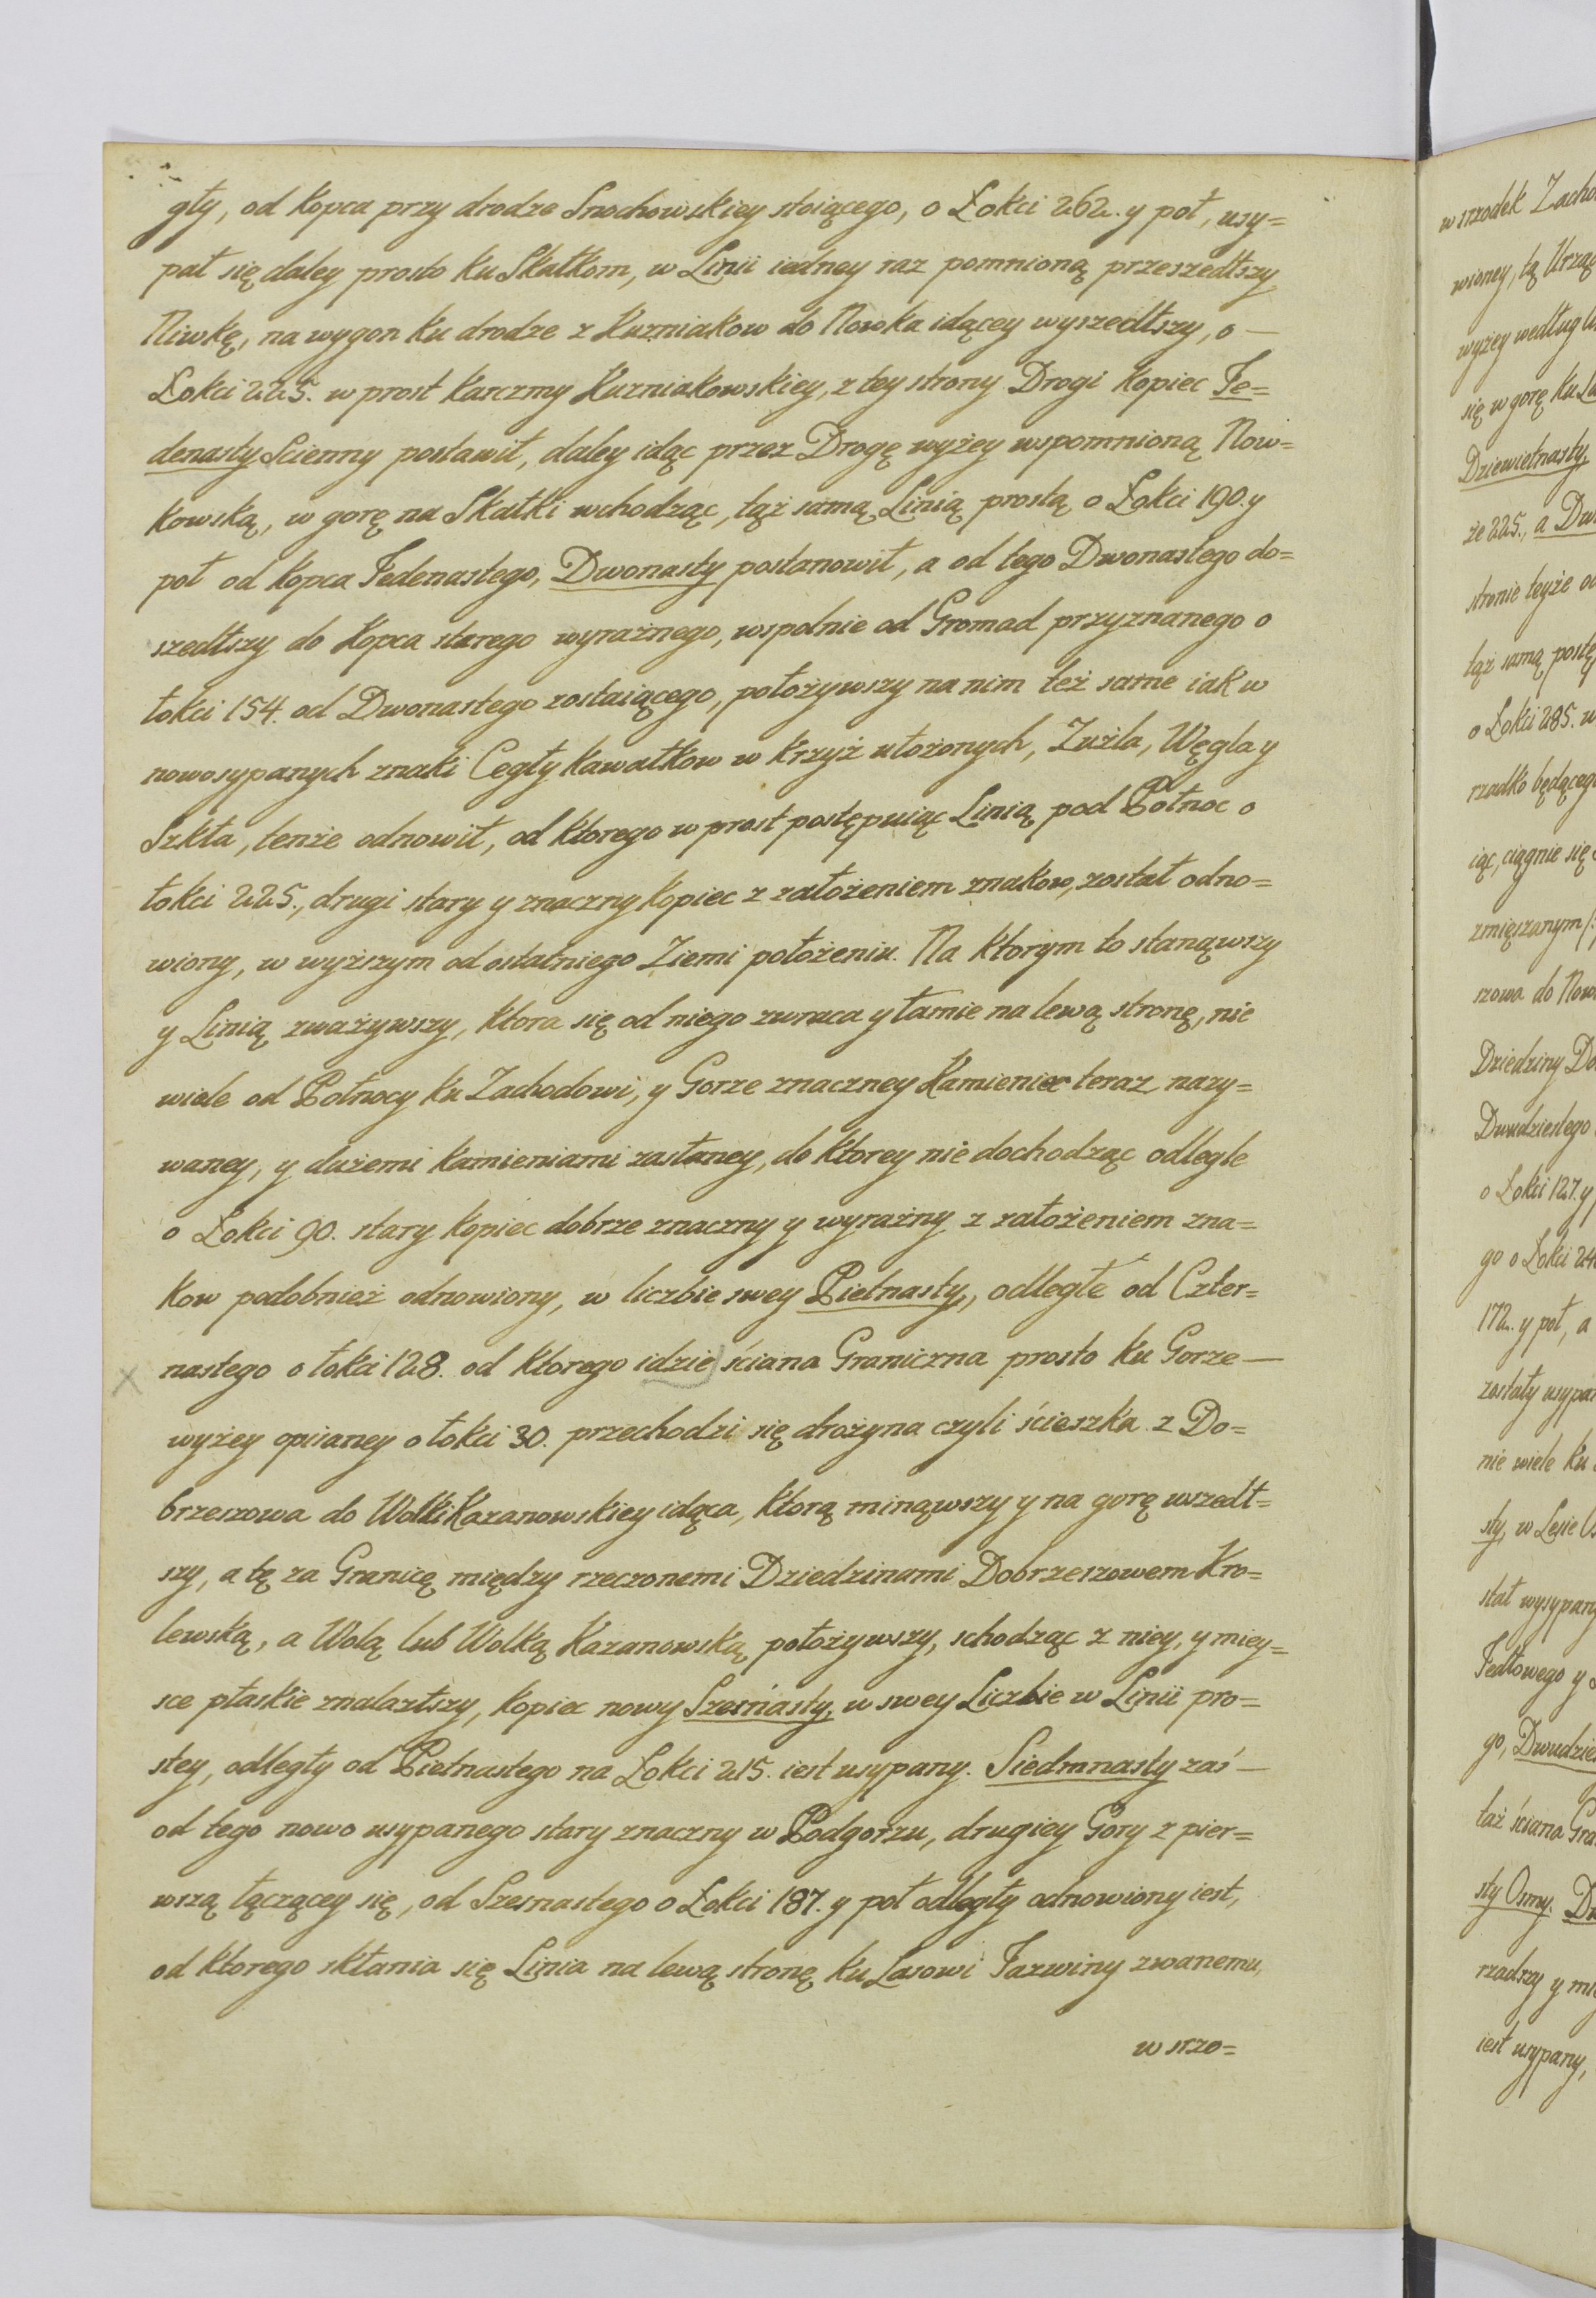 gły, od Kopca przy drodze Snochowskiey stoiącego, o Łokci 262. y poł, usy=
pał się daley prosto ku Skałkom, w Linii iedney raz pomnioną przeszedłszy
Niwkę, na wygon ku drodze z Kuzniakow do Nowka idącey wyszedłszy, o —
Łokci 225. w prost Karczmy Kuzniakowskiey, z tey strony Drogi Kopiec Je=
denasty Scienny postawił, daley idąc przez Drogę wyżey wspomnioną Now=
kowską, w gorę na Skałki wchodząc, tąż samą Linią prostą o Łokci 190. y
poł od Kopca Jedenastego, Dwonasty postanowił, a od tego Dwonastego do=
szedłszy do Kopca starego wyraźnego, wspolnie od Gromad przyznanego o
łokci 154. od Dwonastego zostaiącego, położywszy na nim też same iak w
nowosypanych znaki Cegły kawałkow w krzyż ułożonych, Zużla, Węgla y
Szkła, tenże odnowił, od ktorego w prost postępuiąc Linią pod Połnoc o
łokci 225., drugi stary y znaczny kopiec z założeniem znakow, został odno=
wiony, w wyższym od ostatniego Ziemi położeniu. Na ktorym to stanąwszy
y Linią zważywszy, ktora się od niego zwraca y łamie na lewą stronę, nie
wiele od Połnocy ku Zachodowi, y Gorze znaczney Kamieniec teraz nazy=
waney, y dużemi kamieniami zasłaney, do ktorey nie dochodząc odlegle
o Łokci 90. stary kopiec dobrze znaczny y wyraźny z założeniem zna=
kow podobnież odnowiony, w liczbie swey Pietnasty, odległe od Czter=
nastego o łokci 128. od ktorego idzie ściana Graniczna prosto ku Gorze —
wyżey opisaney o łokci 30. przechodzi się drożyna czyli ścieszka z Do=
brzeszowa do Wolki Kazanowskiey idąca, ktorą minąwszy y na gorę wszedł=
szy, a tę za Granicę między rzeczonemi Dziedzinami Dobrzeszowem Kro=
lewską, a Wolą lub Wolką Kazanowską położywszy, schodząc z niey, y miey=
sce płaskie znalazłszy, kopiec nowy Szesnasty, w swey Liczbie w Linii pro=
stey, odległy od Pietnastego na Łokci 215. iest usypany. Siedmnasty zaś —
od tego nowo usypanego stary znaczny w Podgorzu, drugiey Gory z pier=
wszą łączącey się, od Szesnastego o Łokci 187. y poł odległy odnowiony iest,
od ktorego skłania się Linia na lewą stronę ku Lasowi Jazwiny zwanemu,
w srzo=
w srzodek
wioney, tą
wyżey według
się w gorę ku
Dziewietnasty,
że 225., a
stronie teyże
tąż samą
o Łokci 285. w
rzadko
iąc, ciągnie się
zmięszanym
szowa do
Dziedziny
Dwudziestego
o Łokci 127. y
go o Łokci
172. y poł, a
zostały
nie wiele ku
sty, w Lesie
stał
Jedłowego y
go,
taż ściana
sty Osmy.
rzadszy y
iest usypany,